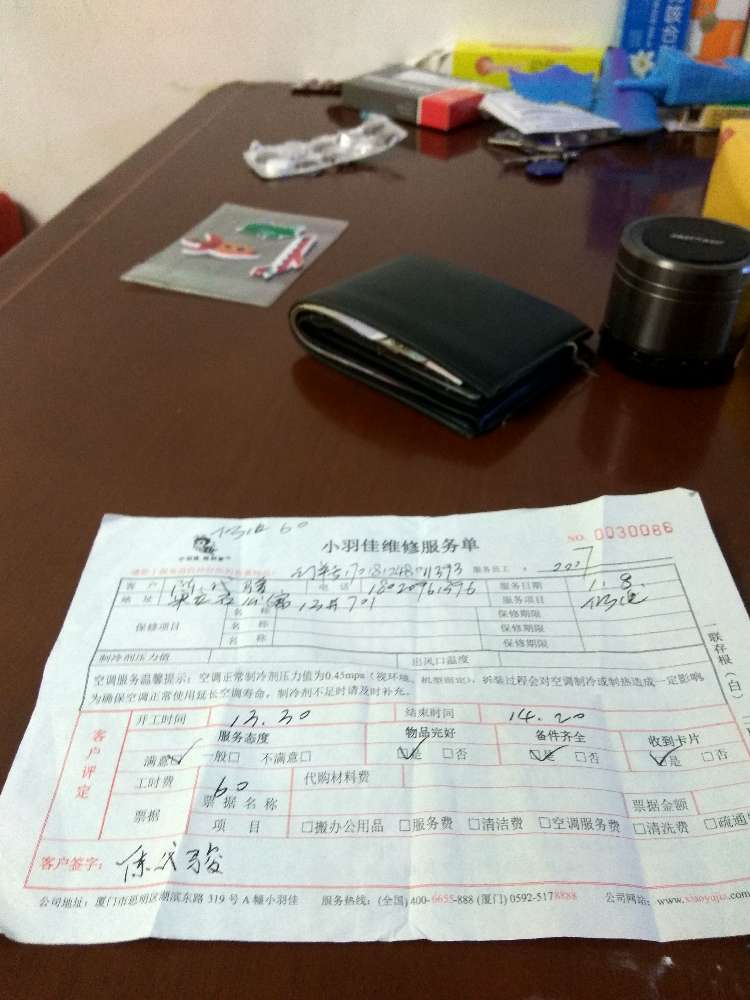 修理 60
小羽佳维修服务单
NO. 0030086
服务员工: 2007
客 户 电 话 服务日期 11.8.
地 址 13#701 服务项目 修理
保修项目 名 称 保修期限
名 称 保修期限
名 称 保修期限
制冷剂压力值 出风口温度
空调服务温馨提示:空调正常制冷剂压力值为0.45mpa(视环境、机型而定),拆装过程会对空调制冷或制热造成一定影响,
为确保空调正常使用延长空调寿命,制冷剂不足时请及时补充。
一联存根(白)
客户评定
开工时间 13.30 结束时间 14.20
服务态度 物品完好 备件齐全 收到卡片
满意☑ 一般□ 不满意□ ☑是 □否 ☑是 □否 ☑是 □否
工时费 60 代购材料费
票据 票据名称 票据金额
项 目 □搬办公用品 □服务费 □清洁费 □空调服务费 □清洗费 □疏通
客户签字:
公司地址:厦门市思明区湖滨东路 319 号 A 幢小羽佳 服务热线:(全国) 400-6655-888 (厦门) 0592-5178888 公司网站:www.xiaoyujia.com